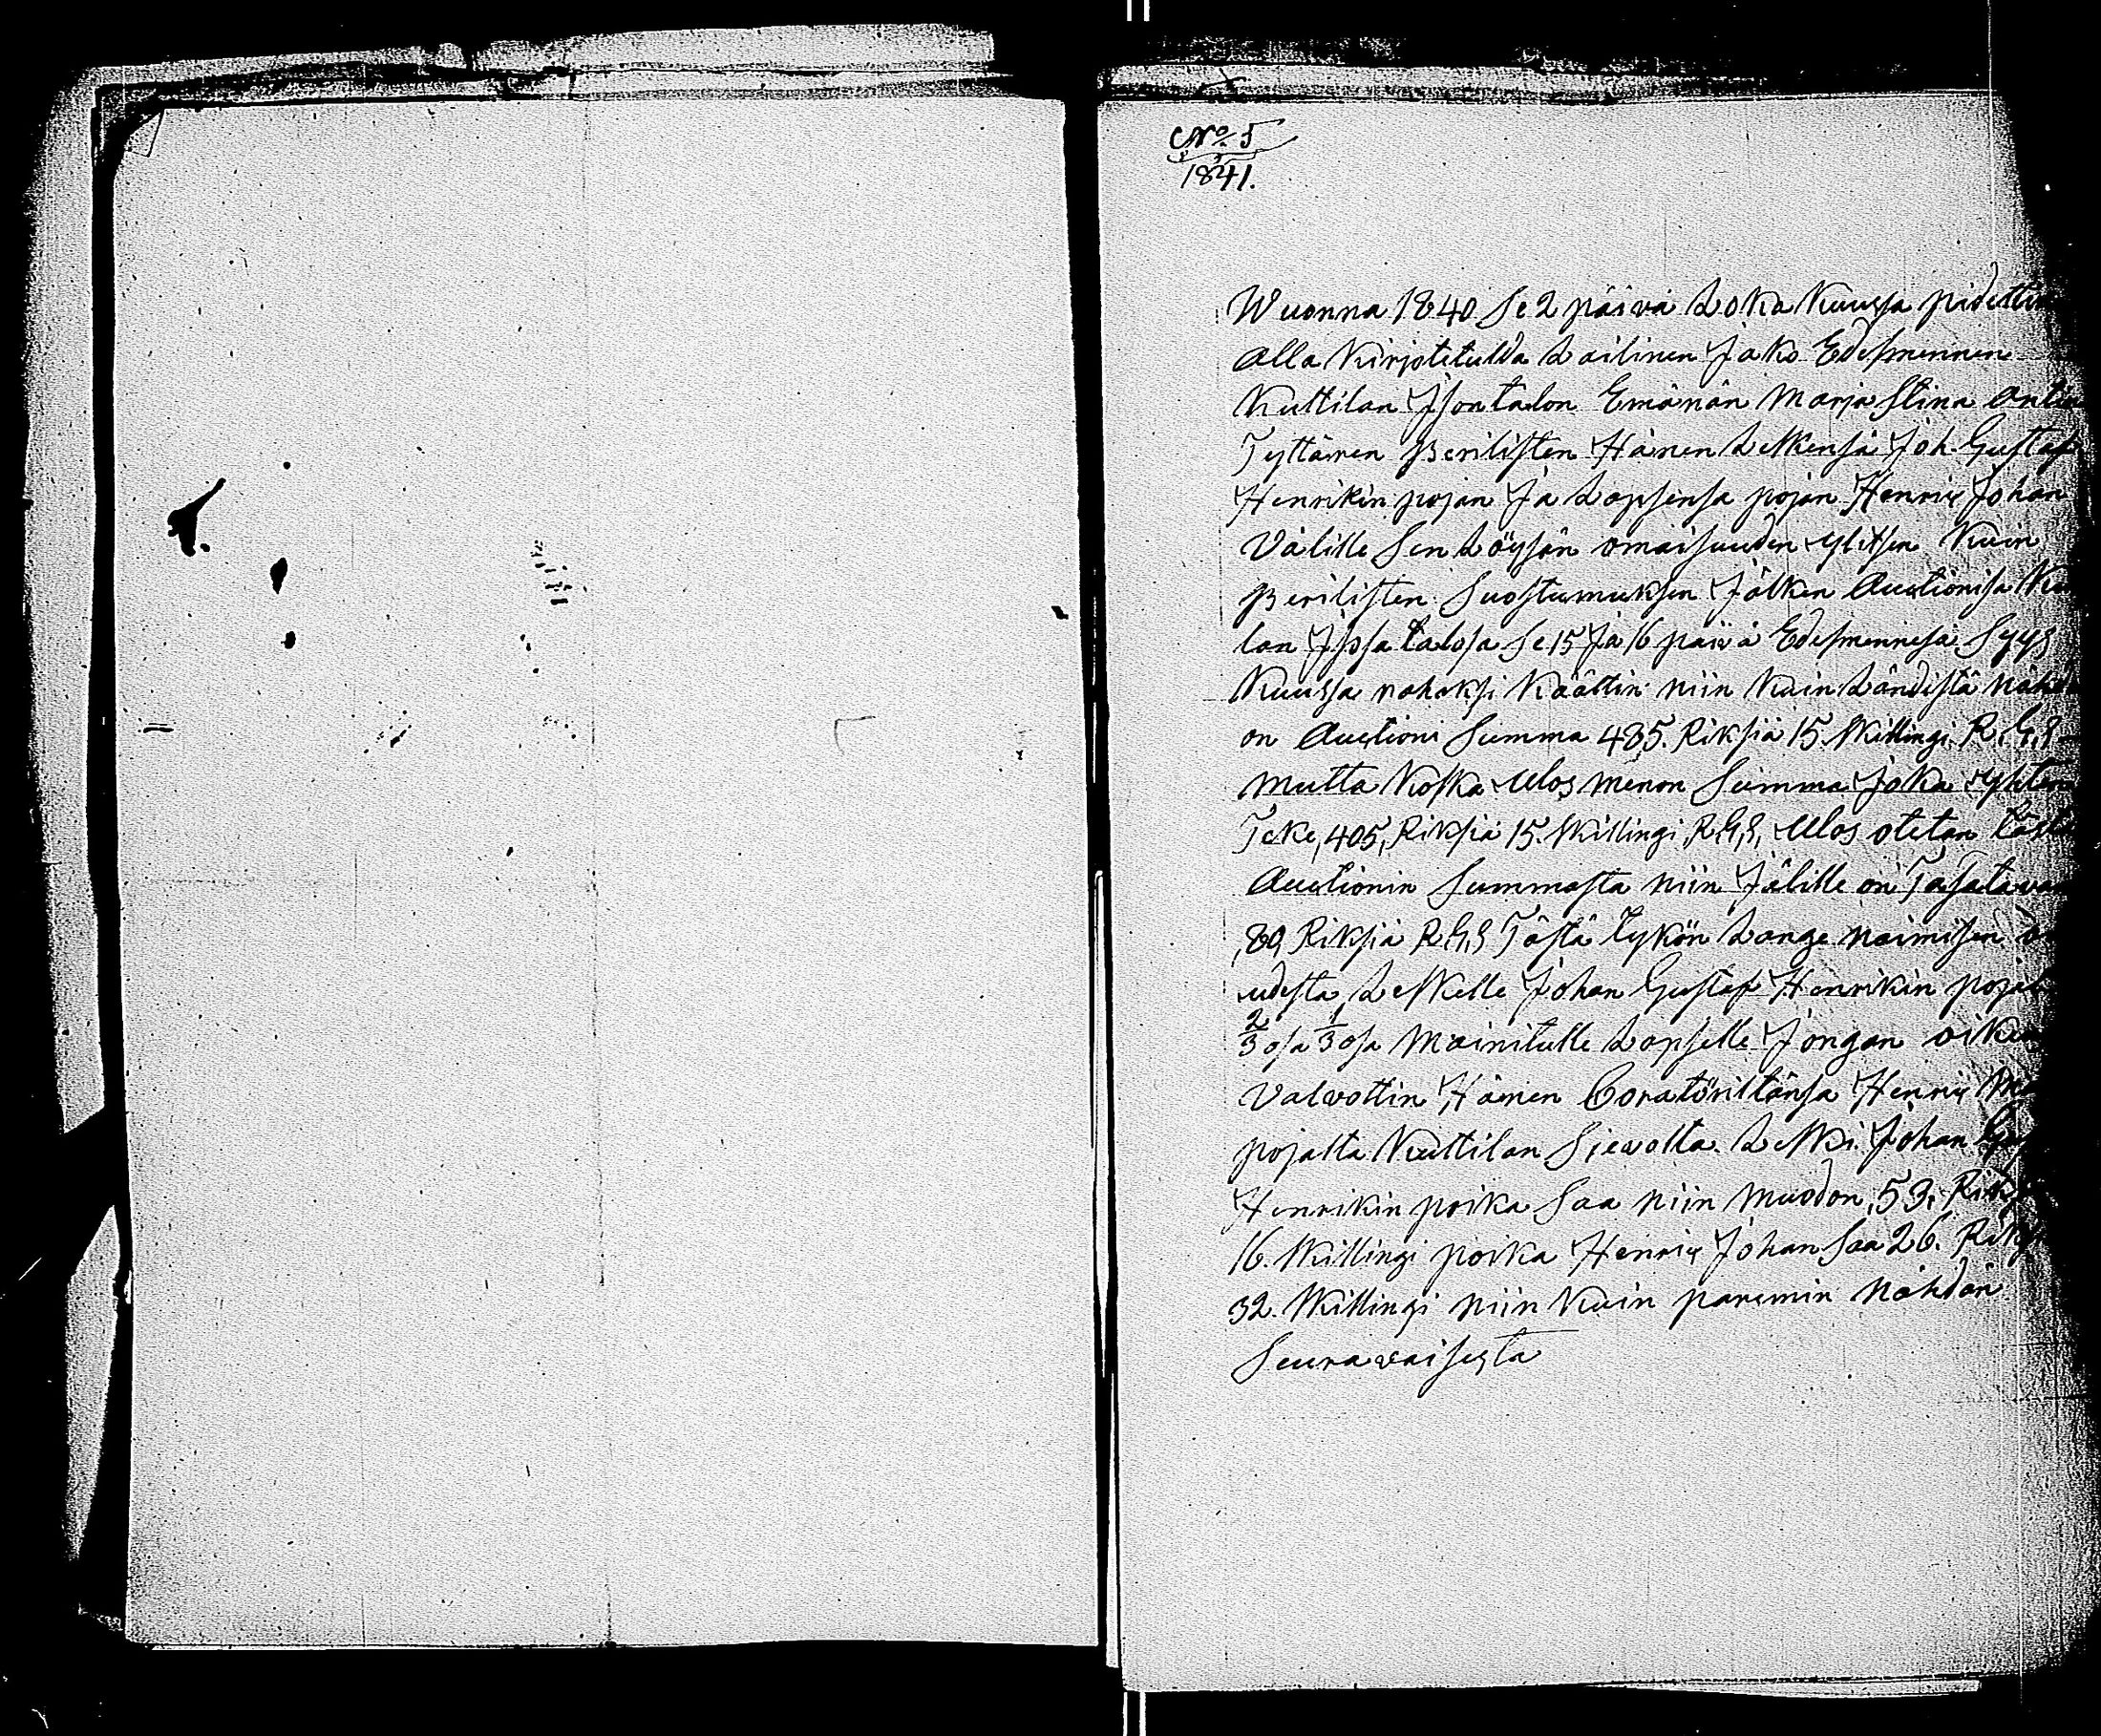 No 5
1841.
Wuonna 1840 Se 2 päivä Loka Kuussa pidettin
Alla Kirjotetulda Lailinen Jako Edesmennen
Kuttilan Ison talon Emänän Marja Stina Antin
Tyttären Perilisten Hänen Leskensä Joh. Gustaf
Henrikin pojan Ja Lapsensa pojan Henric Johan
Välille Sen Löysän omaisuuden Ylitsen Kuin
Perilisten Suostumuksen Jälken Auctionisa
lan Isosa talosa Se 15 Ja 16 päivä Edesmennesä Syys
Kuussa rahaksi Käättin niin Kuin Ländistä
on Auctioni Summa 485. Riksiä 15. Skillingi R.G.S
mutta Koska Ulos menon Summa Joka Yhten
Teke, 405, Riksiä 15. Skillingi, R,G,S, Ulos otetan Tästä
Auctionin Summasta niin Jälille on Tasatava
,80, Riksiä R,G,S Tästä Tykön Lange naimisen
udesta Leskelle Johan Gustaf Henrikin pojal
2/3 osa 1/3 osa Mainitulle Lapselle Jongan
Valvottin Hänen Coratöriltänsä Henric
pojalta Kuttilan Siewolta. Leski Johan
Henrikin poika Saa niin Muodon, 53, Riks
16. Skillingi poika Henric Johan Saa 26. Riks
32. Skillingi niin Kuin paremin Nähdän
Seurawaisesta